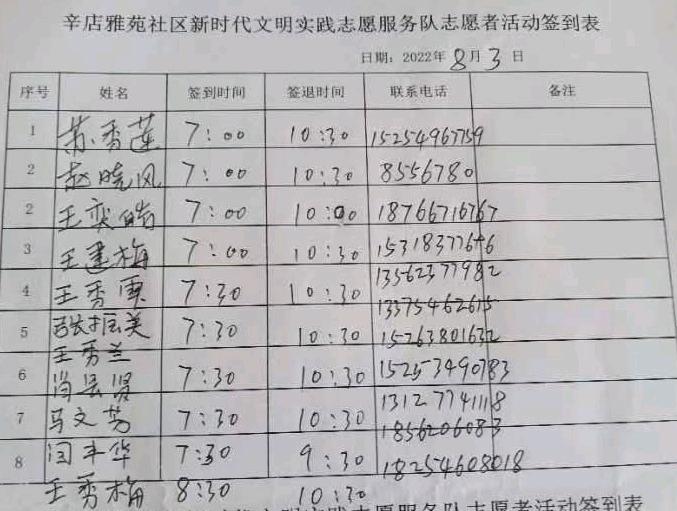 辛店雅苑社区新时代文明实践志愿服务队志愿者活动签到表
日期：2022年 8月 3 日
序号 姓名 签到时间 签退时间 联系电话 备注
1 苏秀莲 7:00 10:30 15254967759
2 赵晓风 7:00 10:30 8556780
2 王奕皓 7:00 10:00 18766716767
3 王建梅 7:00 10:30 15318377646
13562377982
4 王秀惠 7:30 10:30
13375462615
5 张振美 7:30 10:30 15263801632
王秀兰
6 肖吴贤 7:30 10:30 15253490783
13127741118
7 马文芳 7:30 10:30
1856206083
8 闫丰华 7:30 9:30 18254608018
王秀梅 8:30 10:30
文明实践志愿服务队志愿者活动签到表